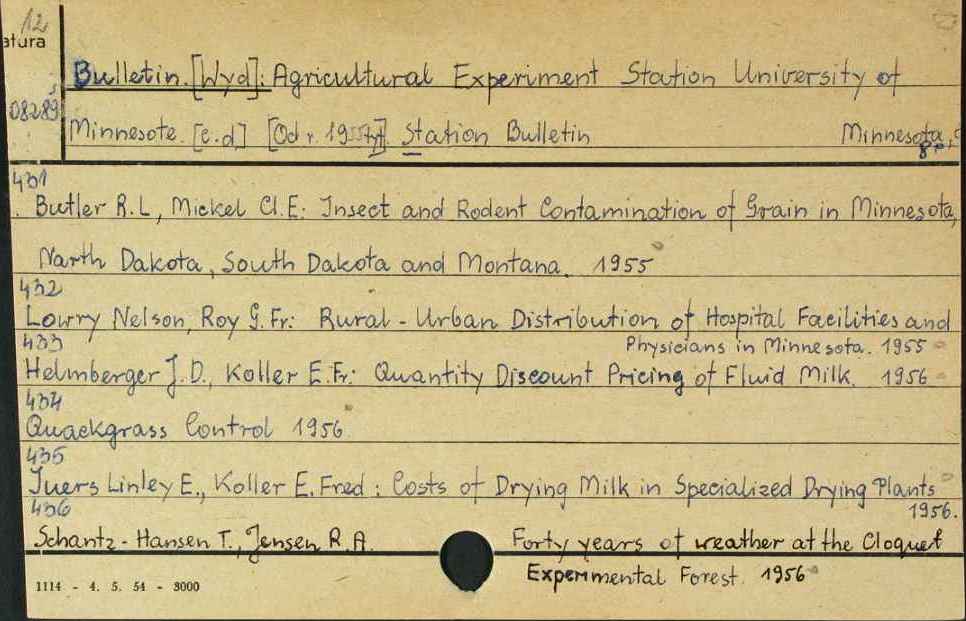 12
atura
s
08289
Bulletin. [Wyd]: Agricultural Experiment Station University of
Minnesote. [c.d] [Od r. 1955 tyt]. Station Bulletin Minnesota,
8°
431
Butler R.L., Mickel Cl.E: Insect and Rodent Contamination of Grain in Minnesota,
North Dakota, South Dakota and Montana. 1955
432
Lowry Nelson, Roy G. Fr: Rural - Urban Distribution of Hospital Facilities and
Physicians in Minnesota. 1955
433
Helmberger J.D., Koller E.Fr: Quantity Discount Pricing of Fluid Milk. 1956
434
Quackgrass Control 1956.
435
Juers Linley E., Koller E. Fred: Costs of Drying Milk in Specialized Drying Plants
1956.
436
Schantz-Hansen T., Jensen R.A. Forty years of weather at the Cloquet
Experimental Forest. 1956
1114 - 4. 5. 54 - 3000